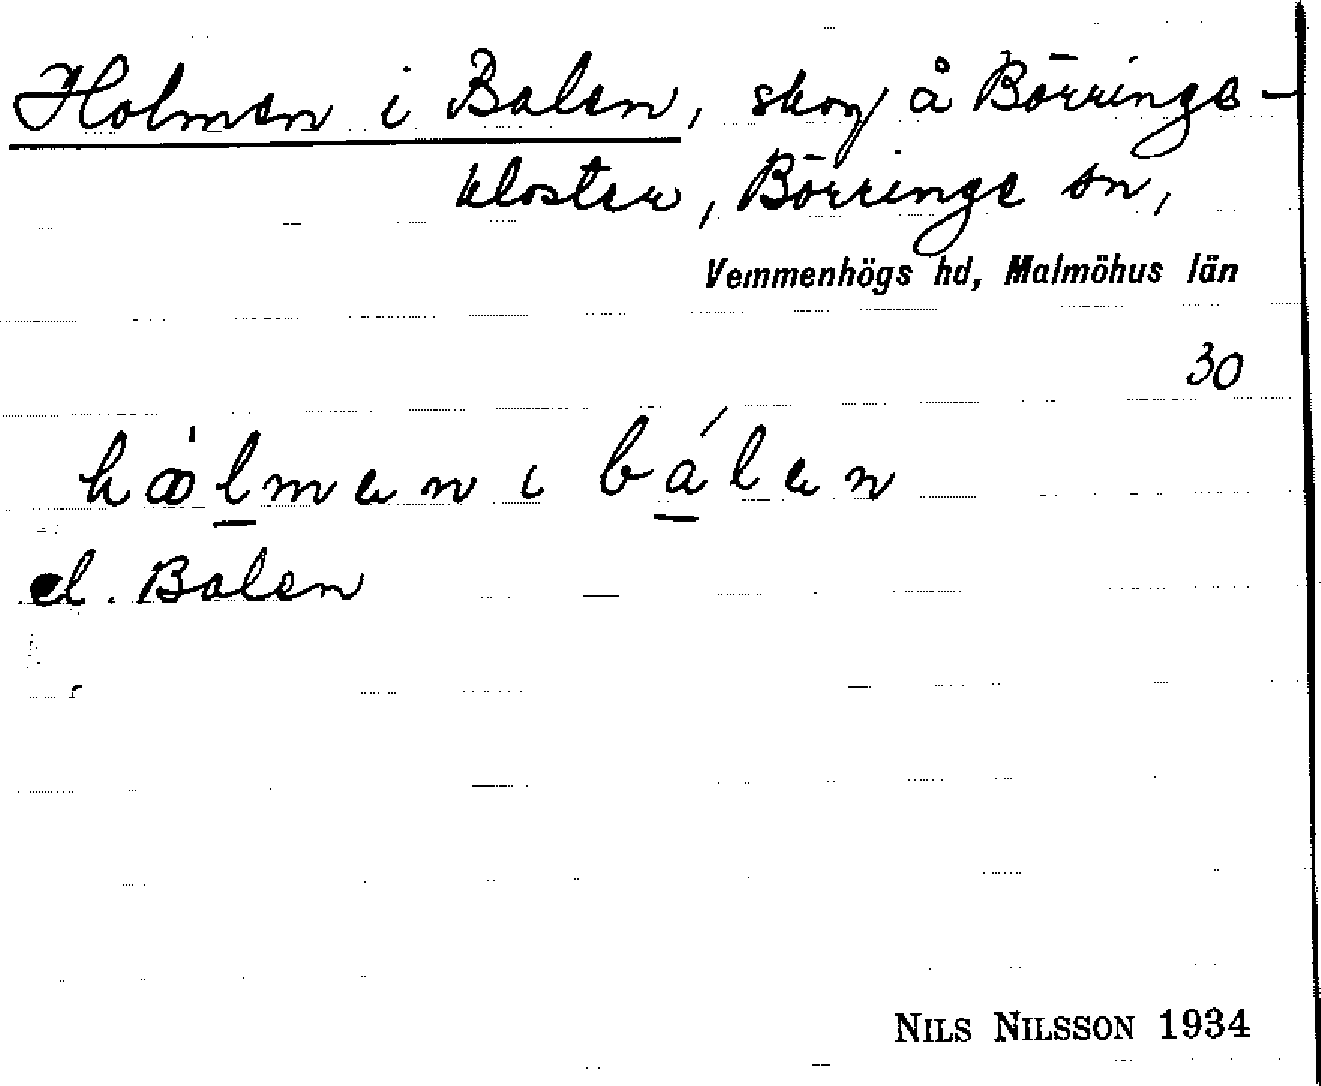 Holmen i Balen, skog å Börringe-
kloster, Börringe sn,
Vemmenhögs hd, Malmöhus län
30
hålmen i bálen
el. Balen
NILS NILSSON 1934